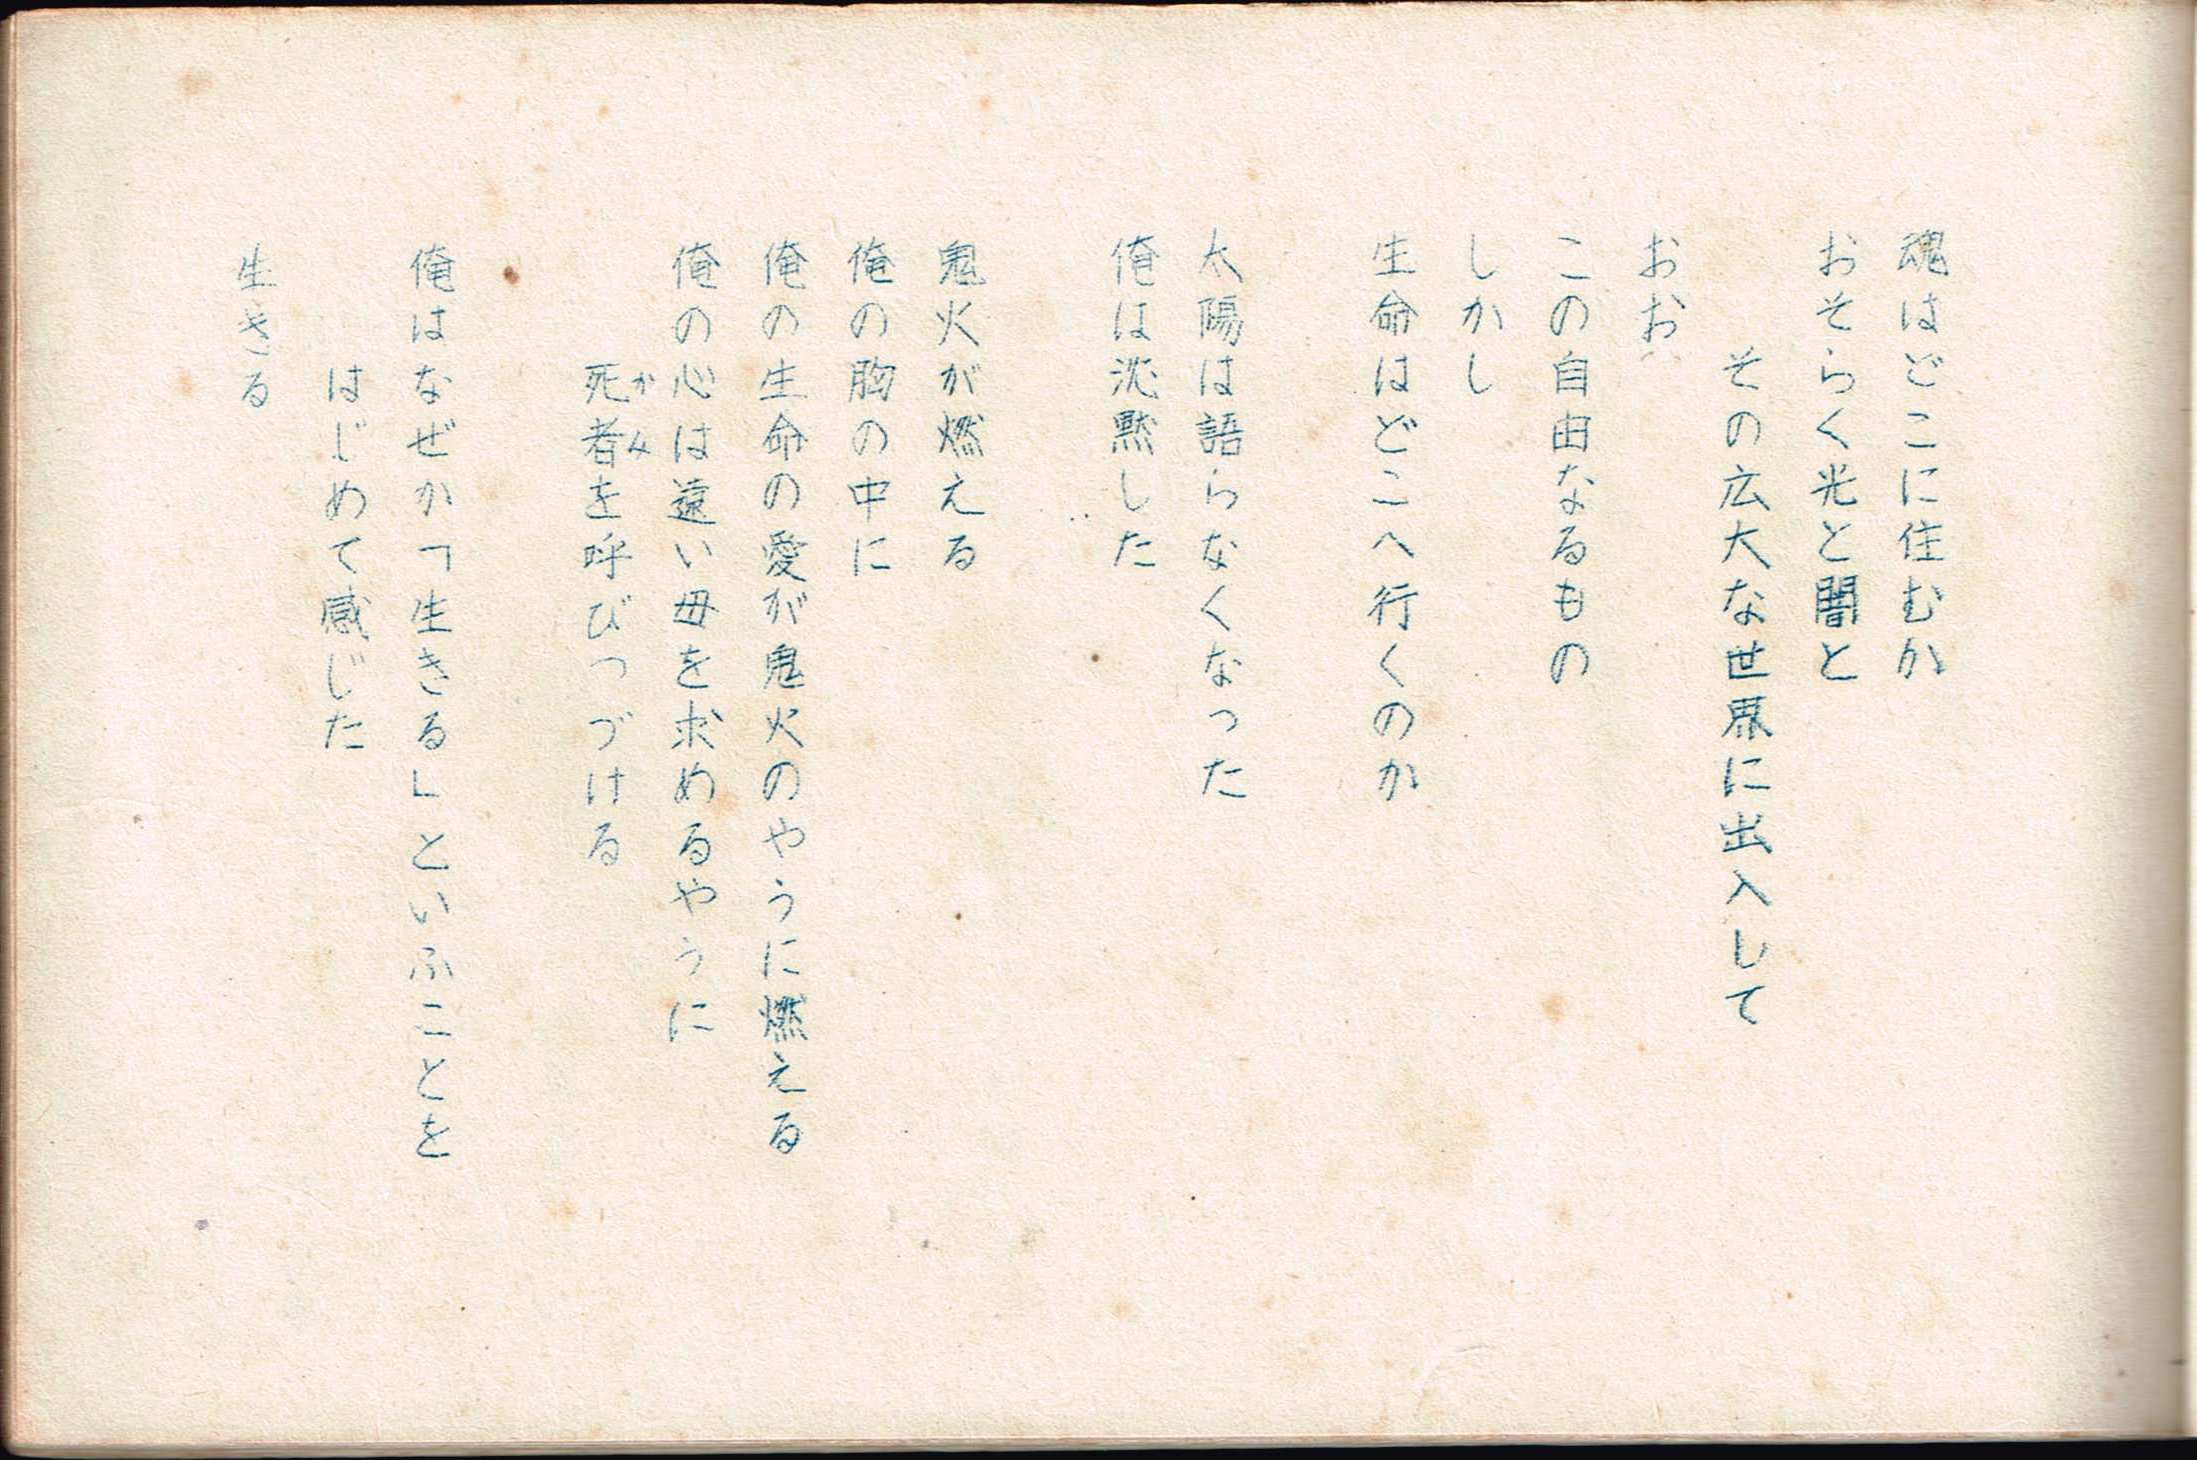 魂はどこに住むか
おそらく光と闇と
その広大な世界に出入して
おお
この自由なるもの
しかし
生命はどこへ行くのか
太陽は語らなくなった
俺は沈黙した
鬼火が燃える
俺の胸の中に
俺の生命の愛が鬼火のやうに燃える
俺の心は遠い母を求めるやうに
かみ
死者を呼びつづける
俺はなぜか「生きる」といふことを
はじめて感じた
生きる